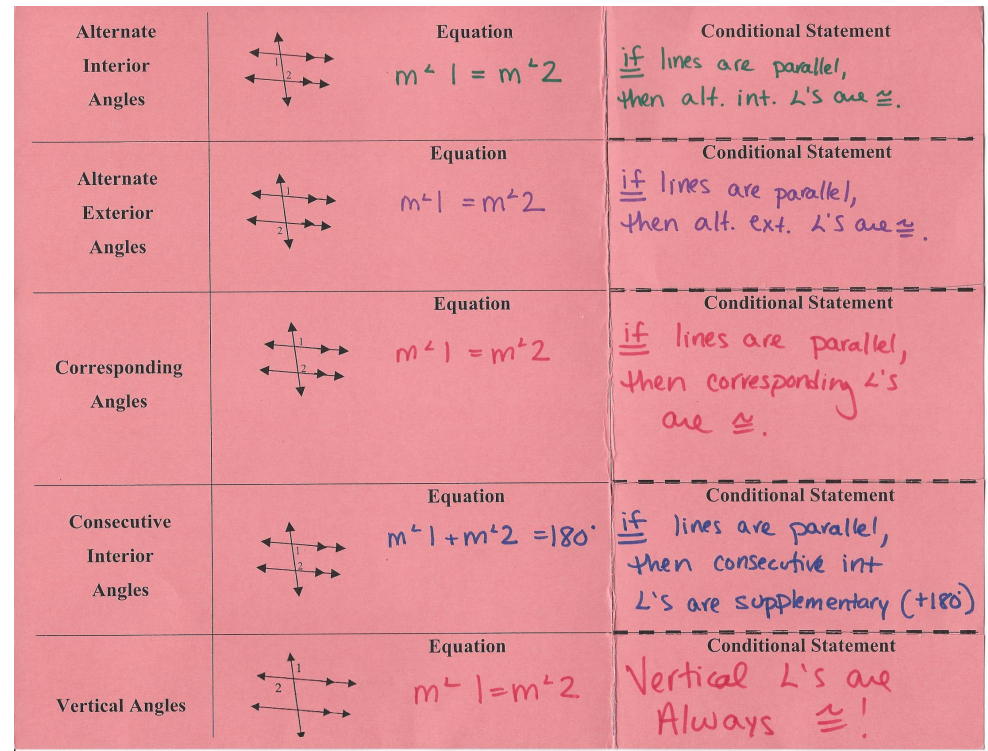 Alternate
Interior
Angles
1
2
Equation
m∠ 1 = m∠2
Conditional Statement
if lines are parallel,
then alt. int. ∠'s are ≅.
Alternate
Exterior
Angles
1
2
Equation
m∠1 = m∠2
Conditional Statement
if lines are parallel,
then alt. ext. ∠'s are ≅.
Corresponding
Angles
1
2
Equation
m∠1 = m∠2
Conditional Statement
if lines are parallel,
then corresponding ∠'s
are ≅.
Consecutive
Interior
Angles
1
2
Equation
m∠1+m∠2 =180°
Conditional Statement
if lines are parallel,
then consecutive int
∠'s are supplementary (+180°)
Vertical Angles
1
2
Equation
m∠1=m∠2
Conditional Statement
Vertical ∠'s are
Always ≅!